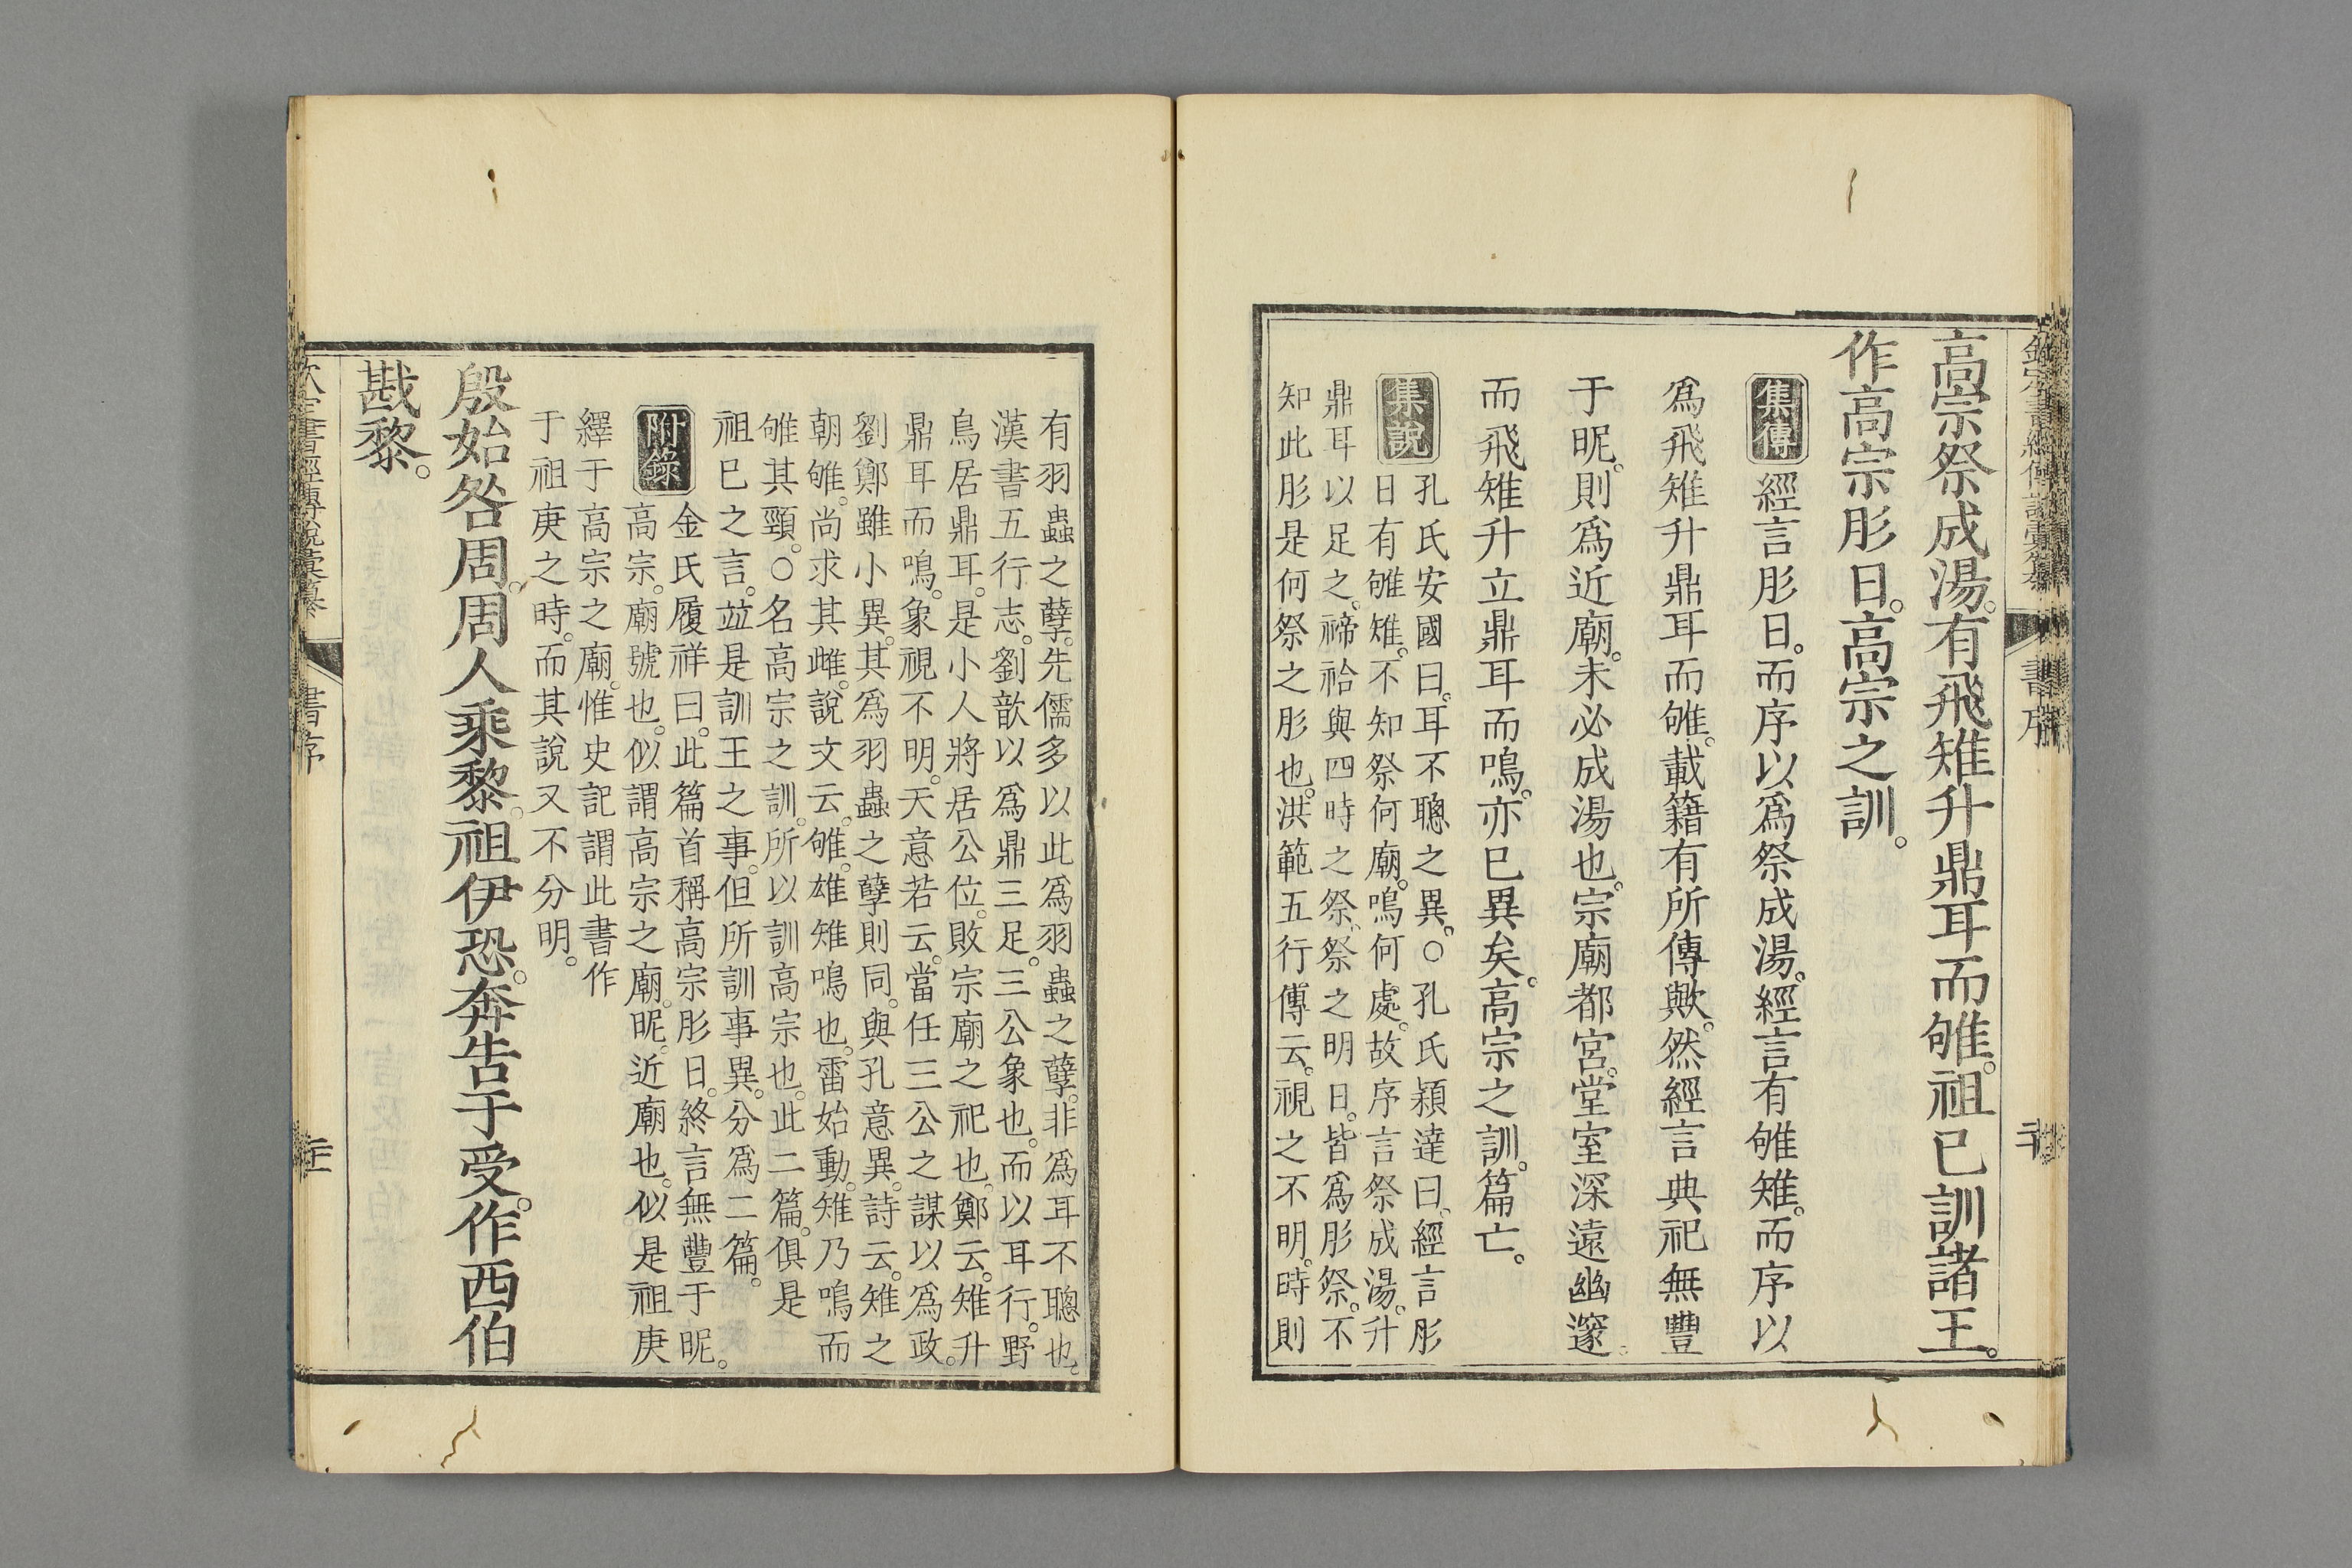 高宗祭成湯。有飛雉升鼎耳而雊。祖已訓諸王。
作高宗肜日。高宗之訓。
集傳 經言肜日。而序以爲祭成湯。經言有雊雉。而序以
爲飛雉升鼎耳而雊。載籍有所傳歟。然經言典祀無豐
于昵。則爲近廟。未必成湯也。宗廟都宮。堂室深遠幽邃。
而飛雉升立鼎耳而鳴。亦已異矣。高宗之訓。篇亡。
集說 孔氏安國曰。耳不聰之異。○孔氏穎達曰。經言肜
日有雊雉。不知祭何廟。鳴何處。故序言祭成湯。升
鼎耳以足之。禘祫與四時之祭。祭之明日。皆爲肜祭。不
知此肜是何祭之肜也。洪範五行傳云。視之不明。時則
書序
有羽蟲之孽。先儒多以此爲羽蟲之孽。非爲耳不聰也。
漢書五行志。劉歆以爲鼎三足。三公象也。而以耳行。野
鳥居鼎耳。是小人將居公位。敗宗廟之祀也。鄭云。雉升
鼎耳而鳴。象視不明。天意若云。當任三公之謀以爲政。
劉鄭雖小異。其爲羽蟲之孽則同。與孔意異。詩云。雉之
朝雊。尚求其雌。說文云。雊。雄雉鳴也。雷始動。雉乃鳴而
雊其頸。○名高宗之訓。所以訓高宗也。此二篇。俱是
祖已之言。並是訓王之事。但所訓事異。分爲二篇。
附錄 金氏履祥曰。此篇首稱高宗肜日。終言無豐于昵。
高宗。廟號也。似謂高宗之廟。昵。近廟也。似是祖庚
繹于高宗之廟。惟史記謂此書作
于祖庚之時。而其說又不分明。
殷始咎周。周人乘黎。祖伊恐。奔告于受。作西伯
戡黎。
欽定書經傳說彙纂 書序